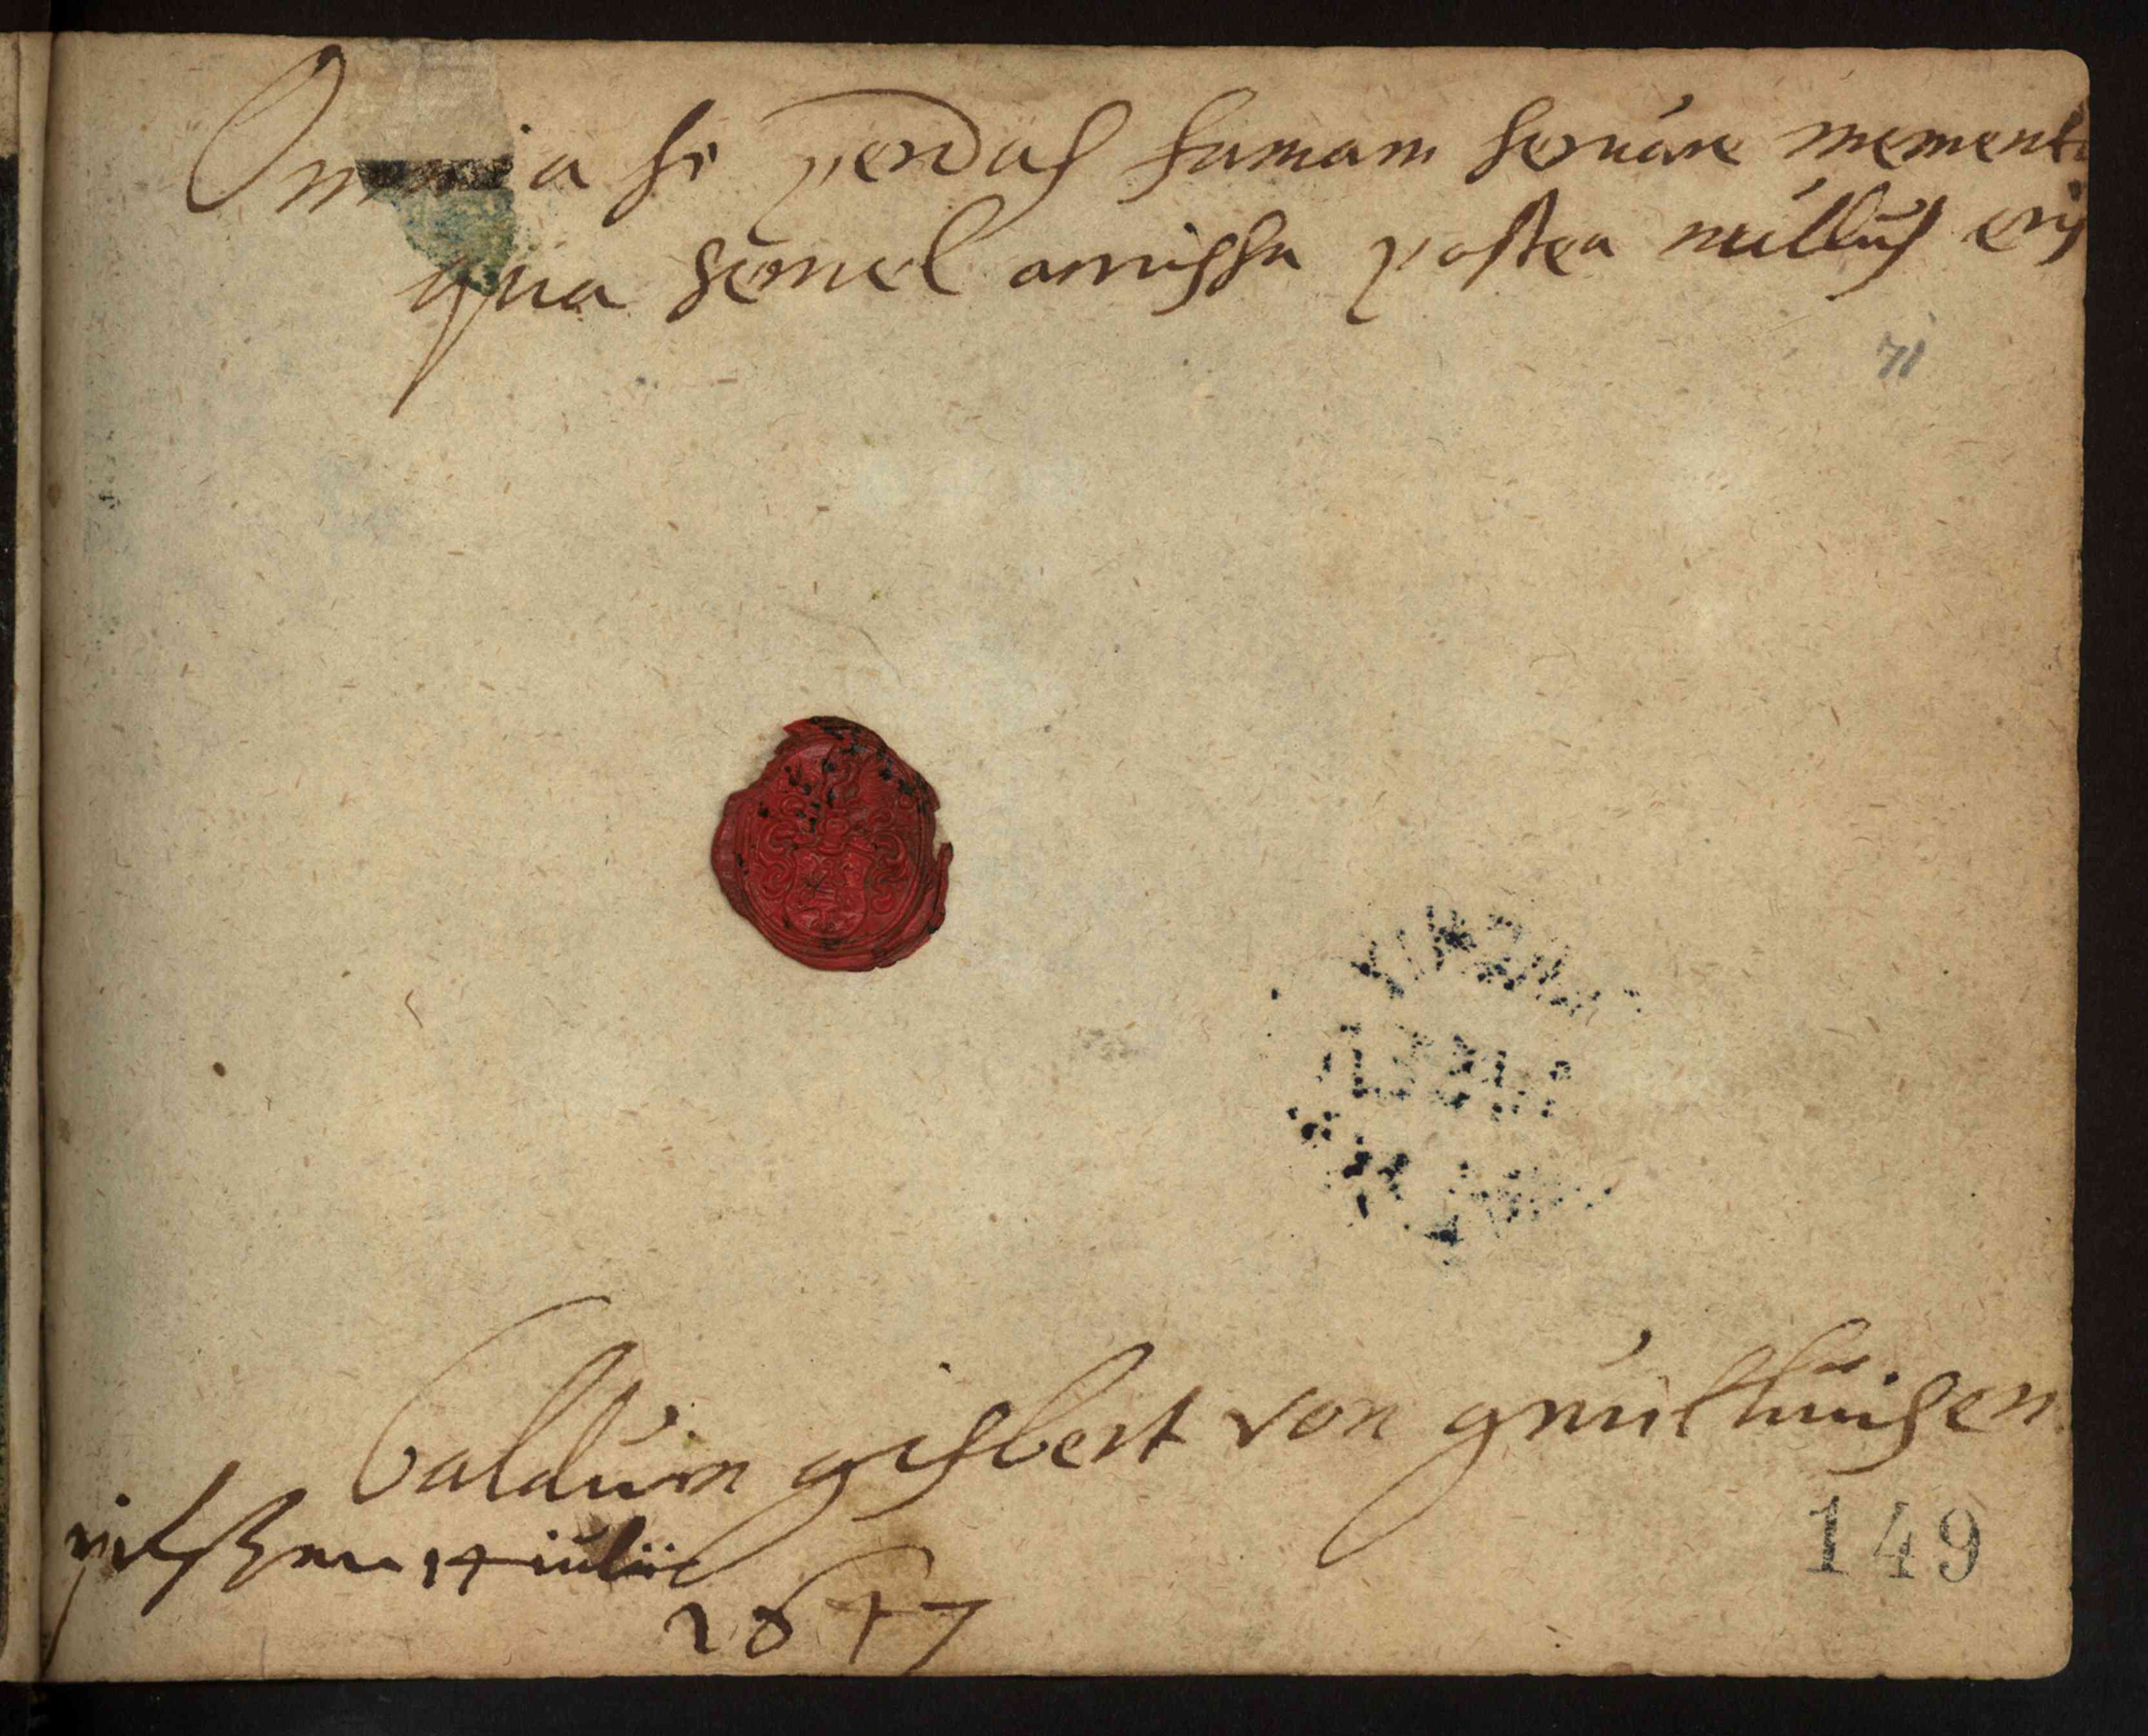 Omnia si perdas famam servare memento
qua semel amissa postea nullus eris
71
balduin gisbert von
14 iulii
149